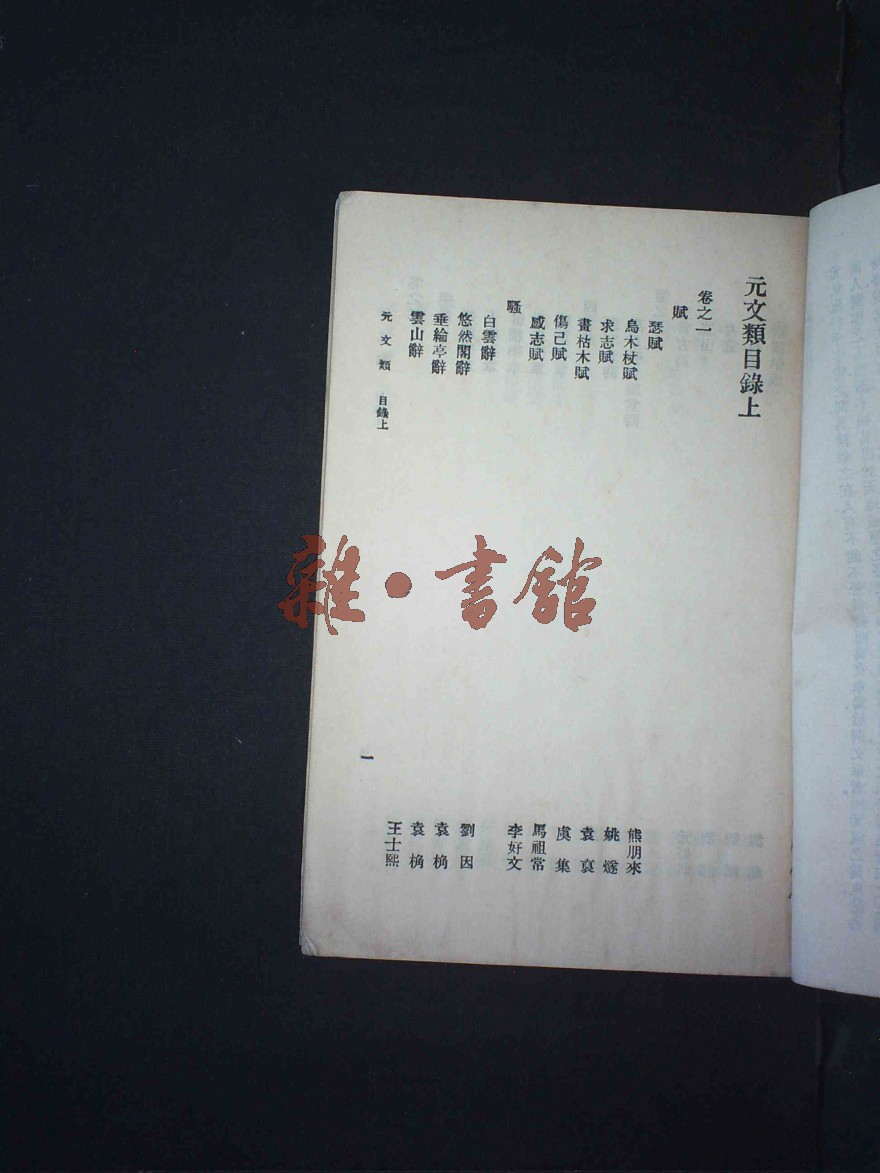 元文類目錄上
卷之一
賦
瑟賦 熊朋來
烏木杖賦 姚燧
求志賦 袁裒
畫枯木賦 虞集
傷己賦 馬祖常
感志賦 李好文
騷
白雲辭 劉因
悠然閣辭 袁桷
垂綸亭辭 袁桷
雲山辭 王士熙
元文類 目錄上 一
雜·書館